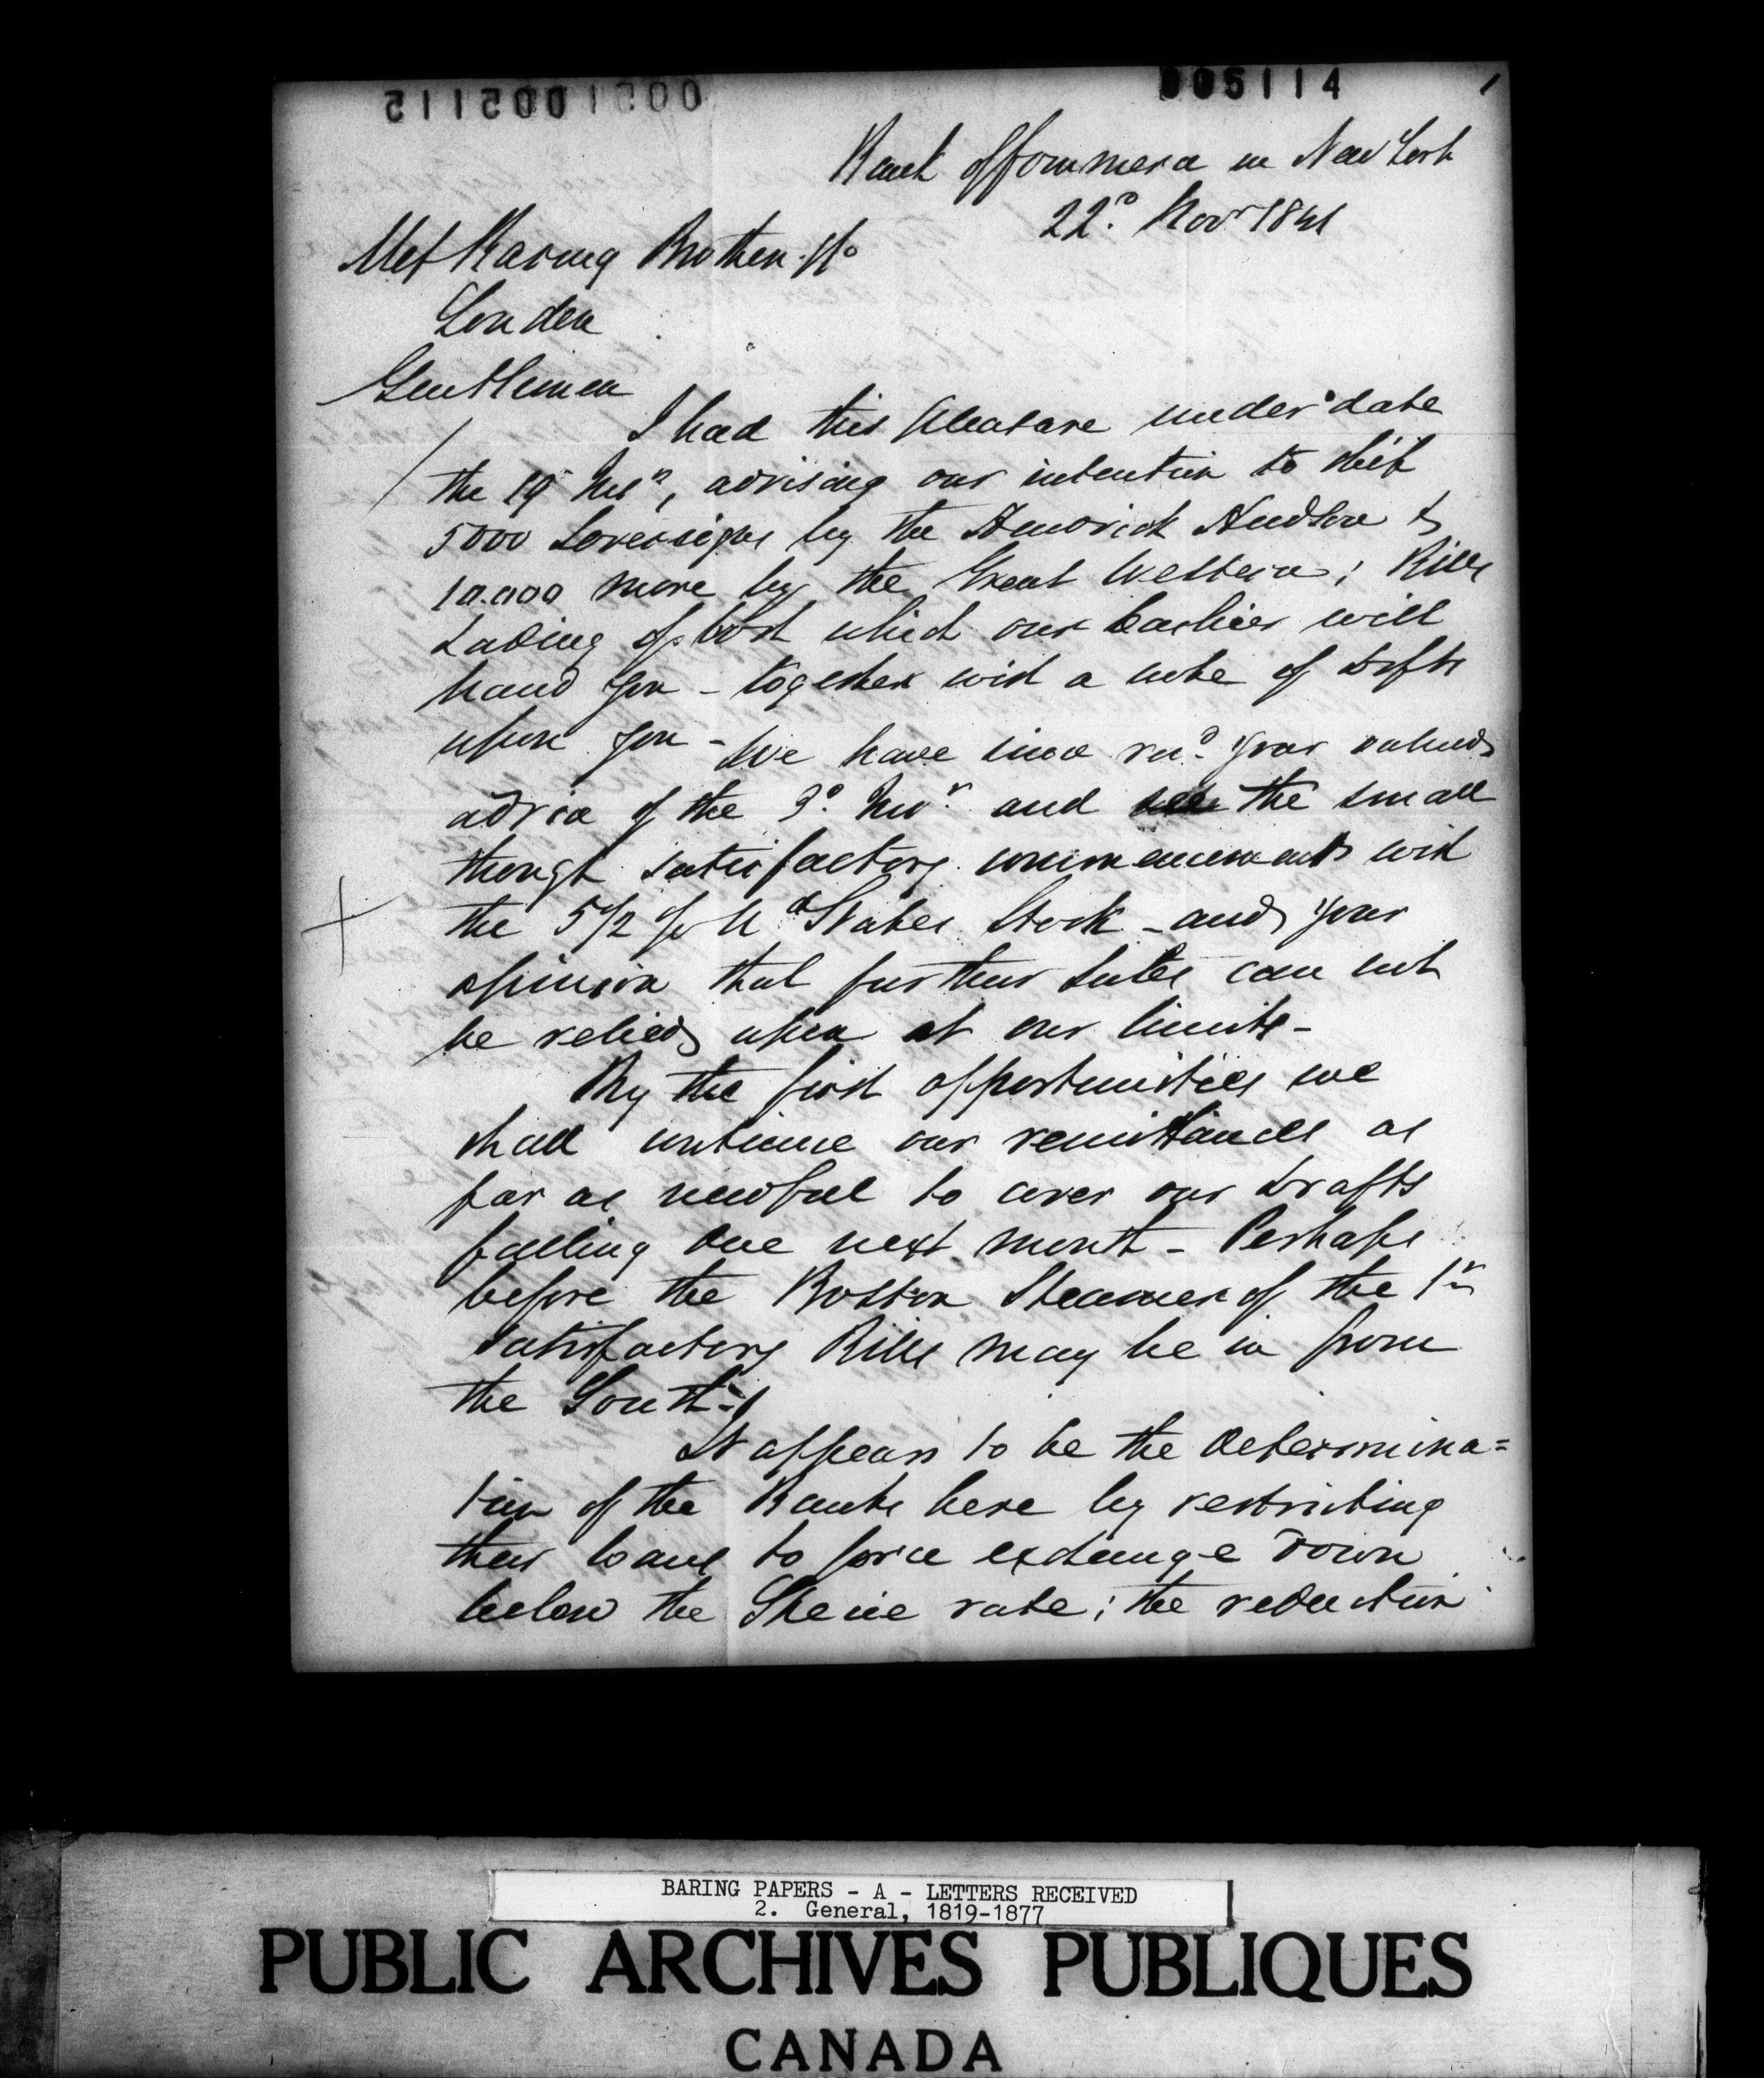 005114
1
Bank of Commerce in New York
22d Novr 1841
Mess Baring Brothers & Co
London
Gentlemen
I had this pleasure under date
the 19 , advising our intention to ship
5000 Sovereigns by the Hendrick Hudson &
10.000 more by the Great Western; Bills
Lading of both which our Cashier will
hand you - together with a note of Drfts
upon you - We have since recd your valued
advice of the 3d and see the small
though satisfactory commencement with
the 5 1/2 p Ct Ud States Stock - and your
opinion that further Sales can not
be relied upon at our limits -
By the first opportunities we
shall continue our remittances as
far as needful to cover our Drafts
falling due next month - Perhaps
before the Boston Steamer of the 1st
satisfactory Bills may be in from
the South -
It appears to be the determina=
tion of the Banks here by restricting
their loans to force exchange down
below the Specie rate; the reduction
BARING PAPERS - A - LETTERS RECEIVED
2. General, 1819-1877
PUBLIC ARCHIVES PUBLIQUES
CANADA